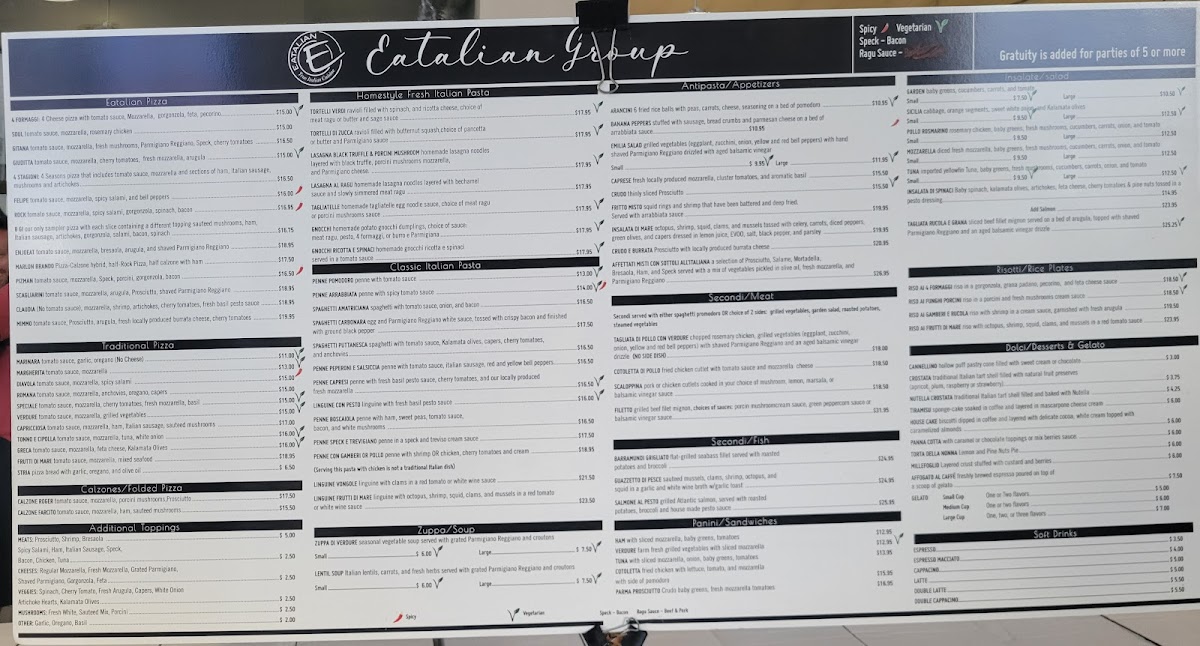 EATALIAN
E
Eatalian Group
Spicy Vegetarian
Speck - Bacon
Ragu Sauce -
Gratuity is added for parties of 5 or more
Eatalian Pizza
4 FORMAGGI: 4 Cheese pizza with tomato sauce, Mozzarella, gorgonzola, feta, pecorino $15.00
SOUL tomato sauce, mozzarella, rosemary chicken $15.00
GITANA tomato sauce, mozzarella, fresh mushrooms, Parmigiano Reggiano, Speck, cherry tomatoes $16.50
GIUDITTA tomato sauce, mozzarella, cherry tomatoes, fresh mozzarella, arugula $15.00
4 STAGIONI: 4 Seasons pizza that includes tomato sauce, mozzarella and sections of ham, Italian sausage,
mushrooms and artichokes $16.50
FELIPE tomato sauce, mozzarella, spicy salami, and bell peppers $16.00
ROCK tomato sauce, mozzarella, spicy salami, gorgonzola, spinach, bacon $16.95
our only sampler pizza with each slice containing a different topping: sauteed mushrooms, ham,
Italian sausage, artichokes, gorgonzola, salami, bacon, spinach $16.75
ENJOEAT tomato sauce, mozzarella, bresaola, arugula, and shaved Parmigiano Reggiano $18.95
MARLON BRANDO Pizza-Calzone hybrid, half-Rock Pizza, half calzone with ham $17.50
PIZMAN tomato sauce, mozzarella, Speck, porcini, gorgonzola, bacon $16.50
SCAGLIARINI tomato sauce, mozzarella, arugula, Prosciutto, shaved Parmigiano Reggiano $18.95
CLAUDIA (No tomato sauce), mozzarella, shrimp, artichokes, cherry tomatoes, fresh basil pesto sauce $18.95
MIMMO tomato sauce, Prosciutto, arugula, fresh locally produced burrata cheese, cherry tomatoes $19.95
Traditional Pizza
MARINARA tomato sauce, garlic, oregano (No Cheese) $11.00
MARGHERITA tomato sauce, mozzarella $13.00
DIAVOLA tomato sauce, mozzarella, spicy salami $15.00
ROMANA tomato sauce, mozzarella, anchovies, oregano, capers $15.00
SPECIALE tomato sauce, mozzarella, cherry tomatoes, fresh mozzarella, basil $15.00
VERDURE tomato sauce, mozzarella, grilled vegetables $15.00
CAPRICCIOSA tomato sauce, mozzarella, ham, Italian sausage, sauteed mushrooms $17.00
TONNO E CIPOLLA tomato sauce, mozzarella, tuna, white onion $16.00
GRECA tomato sauce, mozzarella, feta cheese, Kalamata Olives $16.00
FRUTTI DI MARE tomato sauce, mozzarella, mixed seafood $18.95
STRIA pizza bread with garlic, oregano, and olive oil $ 6.50
Calzones/Folded Pizza
CALZONE ROGER tomato sauce, mozzarella, porcini mushrooms, Prosciutto $17.50
CALZONE FARCITO tomato sauce, mozzarella, ham, sauteed mushrooms $15.50
Additional Toppings
MEATS: Prosciutto, Shrimp, Bresaola $ 5.00
Spicy Salami, Ham, Italian Sausage, Speck,
Bacon, Chicken, Tuna $ 2.50
CHEESES: Regular Mozzarella, Fresh Mozzarella, Grated Parmigiano,
Shaved Parmigiano, Gorgonzola, Feta $ 2.50
VEGGIES: Spinach, Cherry Tomato, Fresh Arugula, Capers, White Onion
Artichoke Hearts, Kalamata Olives $ 2.50
MUSHROOMS: Fresh White, Sauteed Mix, Porcini $ 2.50
OTHER: Garlic, Oregano, Basil $ 2.00
Homestyle Fresh Italian Pasta
TORTELLI VERDI ravioli filled with spinach, and ricotta cheese, choice of
meat ragu or butter and sage sauce $17.95
TORTELLI DI ZUCCA ravioli filled with butternut squash choice of pancetta
or butter and Parmigiano sauce $17.95
LASAGNA BLACK TRUFFLE & PORCINI MUSHROOM homemade lasagna noodles
layered with black truffle, porcini mushrooms mozzarella,
and Parmigiano cheese $17.95
LASAGNA AL RAGU homemade lasagna noodles layered with bechamel
sauce and slowly simmered meat ragu $17.95
TAGLIATELLE homemade tagliatelle egg noodle sauce, choice of meat ragu
or porcini mushrooms sauce $17.95
GNOCCHI homemade potato gnocchi dumplings, choice of sauce:
meat ragu, pesto, 4 formaggi, or burro e Parmigiano $17.95
GNOCCHI RICOTTA E SPINACI homemade gnocchi ricotta e spinaci
served in a tomato sauce $17.95
Classic Italian Pasta
PENNE POMODORO penne with tomato sauce $13.00
PENNE ARRABBIATA penne with spicy tomato sauce $14.00
SPAGHETTI AMATRICIANA spaghetti with tomato sauce, onion, and bacon $16.50
SPAGHETTI CARBONARA egg and Parmigiano Reggiano white sauce, tossed with crispy bacon and finished
with ground black pepper $17.50
SPAGHETTI PUTTANESCA spaghetti with tomato sauce, Kalamata olives, capers, cherry tomatoes,
and anchovies $16.50
PENNE PEPERONI E SALSICCIA penne with tomato sauce, italian sausage, red and yellow bell peppers $16.50
PENNE CAPRESI penne with fresh basil pesto sauce, cherry tomatoes, and our locally produced
fresh mozzarella $16.50
LINGUINE CON PESTO linguine with fresh basil pesto sauce $16.00
PENNE BOSCAIOLA penne with ham, sweet peas, tomato sauce,
bacon, and white mushrooms $16.50
PENNE SPECK E TREVIGIANO penne in a speck and treviso cream sauce $17.50
PENNE CON GAMBERI OR POLLO penne with shrimp OR chicken, cherry tomatoes and cream $18.95
(Serving this pasta with chicken is not a traditional Italian dish)
LINGUINE VONGOLE linguine with clams in a red tomato or white wine sauce $21.50
LINGUINE FRUTTI DI MARE linguine with octopus, shrimp, squid, clams, and mussels in a red tomato
or white wine sauce $23.50
Zuppa/Soup
ZUPPA DI VERDURE seasonal vegetable soup served with grated Parmigiano Reggiano and croutons
Small $ 6.00 Large $ 7.50
LENTIL SOUP Italian lentils, carrots, and fresh herbs served with grated Parmigiano Reggiano and croutons
Small $ 6.00 Large $ 7.50
Antipasta/Appetizers
ARANCINI 6 fried rice balls with peas, carrots, cheese, seasoning on a bed of pomodoro $10.95
BANANA PEPPERS stuffed with sausage, bread crumbs and parmesan cheese on a bed of
arrabbiata sauce $10.95
EMILIA SALAD grilled vegetables (eggplant, zucchini, onion, yellow and red bell peppers) with hand
shaved Parmigiano Reggiano drizzled with aged balsamic vinegar
Small $ 9.95 Large $11.95
CAPRESE fresh locally produced mozzarella, cluster tomatoes, and aromatic basil $15.50
CRUDO thinly sliced Prosciutto $15.50
FRITTO MISTO squid rings and shrimp that have been battered and deep fried.
Served with arrabbiata sauce $19.95
INSALATA DI MARE octopus, shrimp, squid, clams, and mussels tossed with celery, carrots, diced peppers,
green olives, and capers dressed in lemon juice, EVOO, salt, black pepper, and parsley $19.95
CRUDO E BURRATA Prosciutto with locally produced burrata cheese $28.95
AFFETTATI MISTI CON SOTTOLI ALL'ITALIANA a selection of Prosciutto, Salame, Mortadella,
Bresaola, Ham, and Speck served with a mix of vegetables pickled in olive oil, fresh mozzarella, and
Parmigiano Reggiano $26.95
Secondi/Meat
Secondi served with either spaghetti pomodoro OR choice of 2 sides: grilled vegetables, garden salad, roasted potatoes,
steamed vegetables
TAGLIATA DI POLLO CON VERDURE chopped rosemary chicken, grilled vegetables (eggplant, zucchini,
onion, yellow and red bell peppers) with shaved Parmigiano Reggiano and an aged balsamic vinegar
drizzle (NO SIDE DISH) $18.00
COTOLETTA DI POLLO fried chicken cutlet with tomato sauce and mozzarella cheese $18.50
SCALOPPINA pork or chicken cutlets cooked in your choice of mushroom, lemon, marsala, or
balsamic vinegar sauce $18.50
FILETTO grilled beef filet mignon, choices of sauce: porcini mushroomcream sauce, green peppercorn sauce or
balsamic vinegar sauce $31.95
Secondi/Fish
BARRAMUNDI GRIGLIATO flat-grilled seabass filet served with roasted
potatoes and broccoli $24.95
GUAZZETTO DI PESCE sauteed mussels, clams, shrimp, octopus, and
squid in a garlic and white wine broth w/garlic toast $24.95
SALMONE AL PESTO grilled Atlantic salmon, served with roasted
potatoes, broccoli and house made pesto sauce $25.95
Panini/Sandwiches
HAM with sliced mozzarella, baby greens, tomatoes $12.95
VERDURE farm fresh grilled vegetables with sliced mozzarella $12.95
TUNA with sliced mozzarella, onion, baby greens, tomatoes $13.95
COTOLETTA fried chicken with lettuce, tomato, and mozzarella
with side of pomodoro $15.95
PARMA PROSCIUTTO Crudo baby greens, fresh mozzarella tomatoes $16.95
Insalate/Salad
GARDEN baby greens, cucumbers, carrots, and tomato
Small $ 7.50 Large $13.50
SICILIA cabbage, orange segments, sweet white onion and Kalamata olives
Small $ 9.50 Large $12.50
POLLO ROSMARINO rosemary chicken, baby greens, fresh mushrooms, cucumbers, carrots, onion, and tomato
Small $ 9.50 Large $12.50
MOZZARELLA diced fresh mozzarella, baby greens, fresh mushrooms, cucumbers, carrots, onion, and tomato
Small $ 9.50 Large $12.50
TUNA imported yellowfin Tuna, baby greens, fresh mushrooms, cucumbers, carrots, onion, and tomato
Small $ 9.50 Large $12.50
INSALATA DI SPINACI Baby spinach, kalamata olives, artichokes, feta cheese, cherry tomatoes & pine nuts tossed in a
pesto dressing $14.95
Add Salmon $23.95
TAGLIATA RUCOLA E GRANA sliced beef filet mignon served on a bed of arugula, topped with shaved
Parmigiano Reggiano and an aged balsamic vinegar drizzle $25.25
Risotti/Rice Plates
RISO AI 4 FORMAGGI rice in a gorgonzola, grana padano, pecorino, and feta cheese sauce $18.50
RISO AI FUNGHI PORCINI rice in a porcini and fresh mushrooms cream sauce $18.50
RISO AI GAMBERI E RUCOLA rice with shrimp in a cream sauce, garnished with fresh arugula $18.50
RISO AI FRUTTI DI MARE rice with octopus, shrimp, squid, clams, and mussels in a red tomato sauce $23.95
Dolci/Desserts & Gelato
CANNELLINO hollow puff pastry cone filled with sweet cream or chocolate $ 3.00
CROSTATA traditional Italian tart shell filled with natural fruit preserves
(apricot, plum, raspberry or strawberry) $ 3.75
NUTELLA CROSTATA traditional Italian tart shell filled and baked with Nutella $ 4.25
TIRAMISU sponge-cake soaked in coffee and layered in mascarpone cheese cream $ 6.00
HOUSE CAKE biscotti dipped in coffee and layered with delicate cocoa, white cream topped with
caramelized almonds $ 6.00
PANNA COTTA with caramel or chocolate toppings or mix berries sauce $ 6.00
TORTA DELLA NONNA Lemon and Pine Nuts Pie $ 6.00
MILLEFOGLIE Layered crust stuffed with custard and berries $ 6.00
AFFOGATO AL CAFFÉ freshly brewed espresso poured on top of
a scoop of gelato $ 7.50
GELATO Small Cup One or Two flavors $ 5.00
Medium Cup One or two flavors $ 6.00
Large Cup One, two, or three flavors $ 7.00
Soft Drinks
ESPRESSO $ 3.50
ESPRESSO MACCIATO $ 4.00
CAPPACINO $ 5.00
LATTE $ 5.00
DOUBLE LATTE $ 5.50
DOUBLE CAPPACINO $ 5.50
Spicy Vegetarian Speck - Bacon Ragu Sauce - Beef & Pork